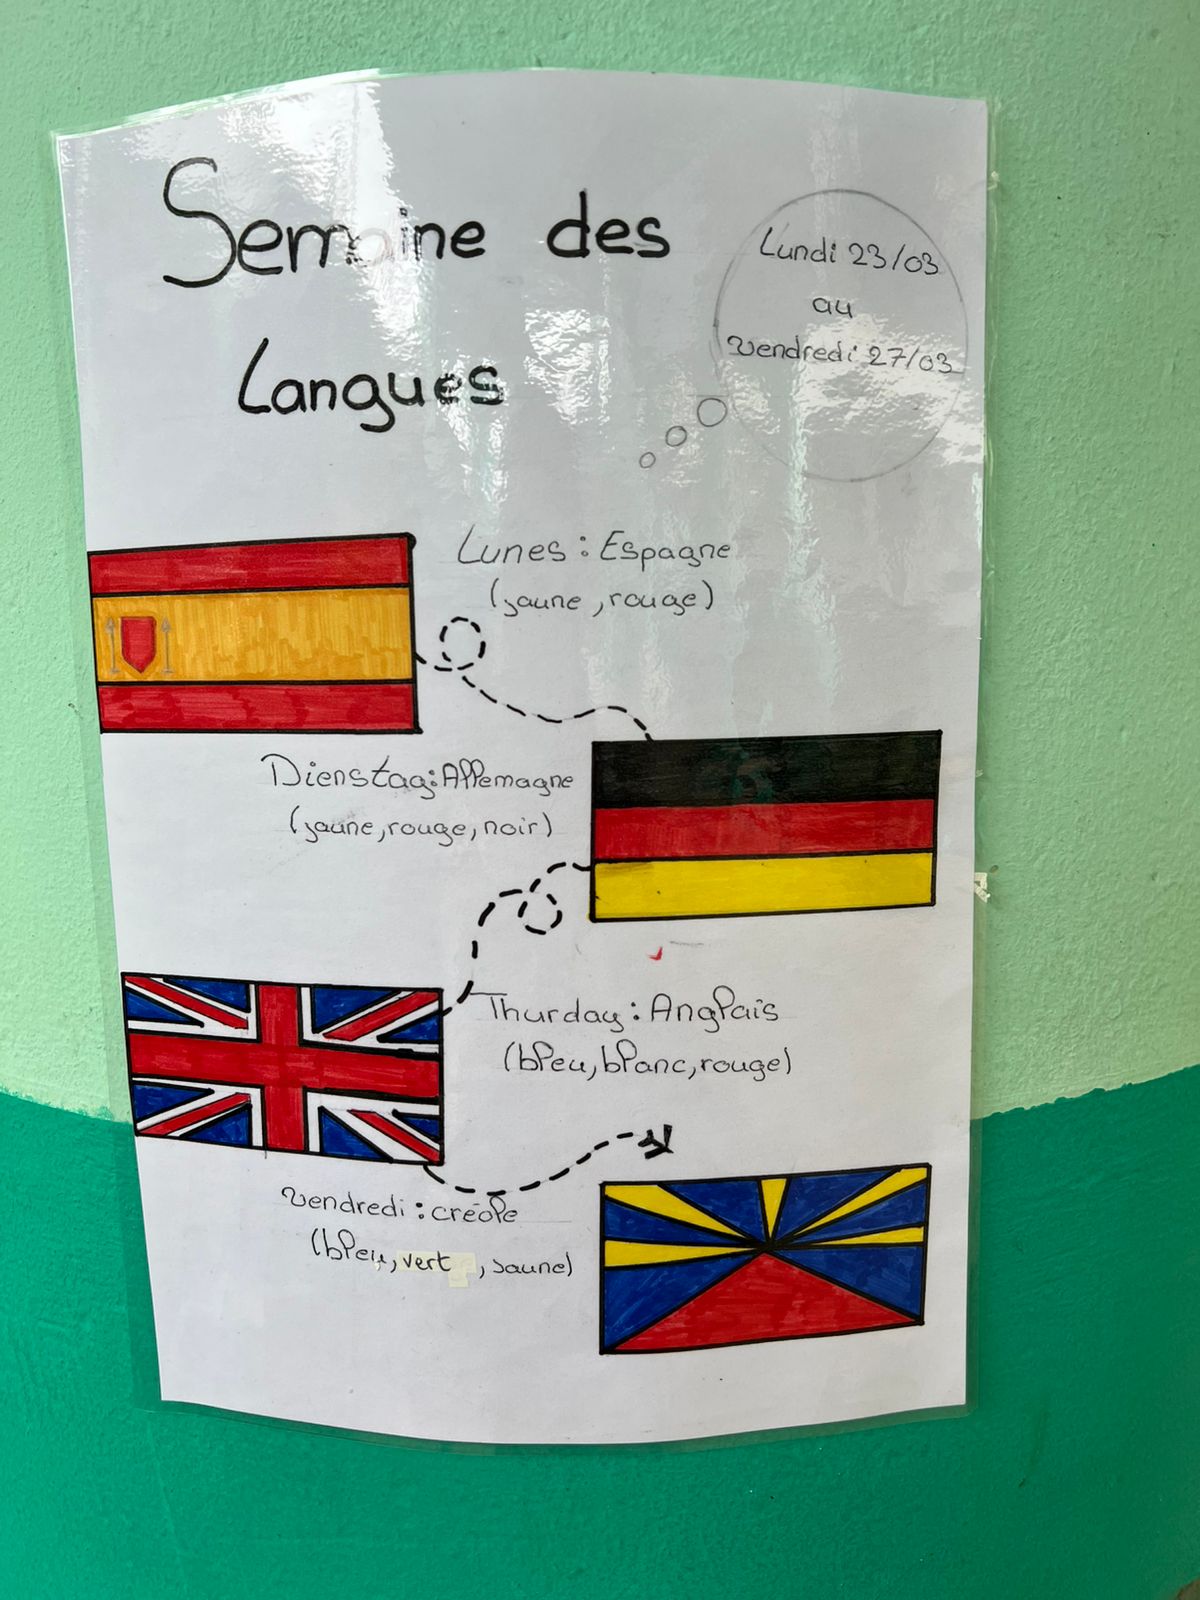 Semaine des
Langues
Lundi 23/03
au
Vendredi 27/03
Lunes : Espagne
(jaune, rouge)
Dienstag : Allemagne
(jaune, rouge, noir)
Thurday : Anglais
(bleu, blanc, rouge)
Vendredi : créole
(bleu, vert, jaune)